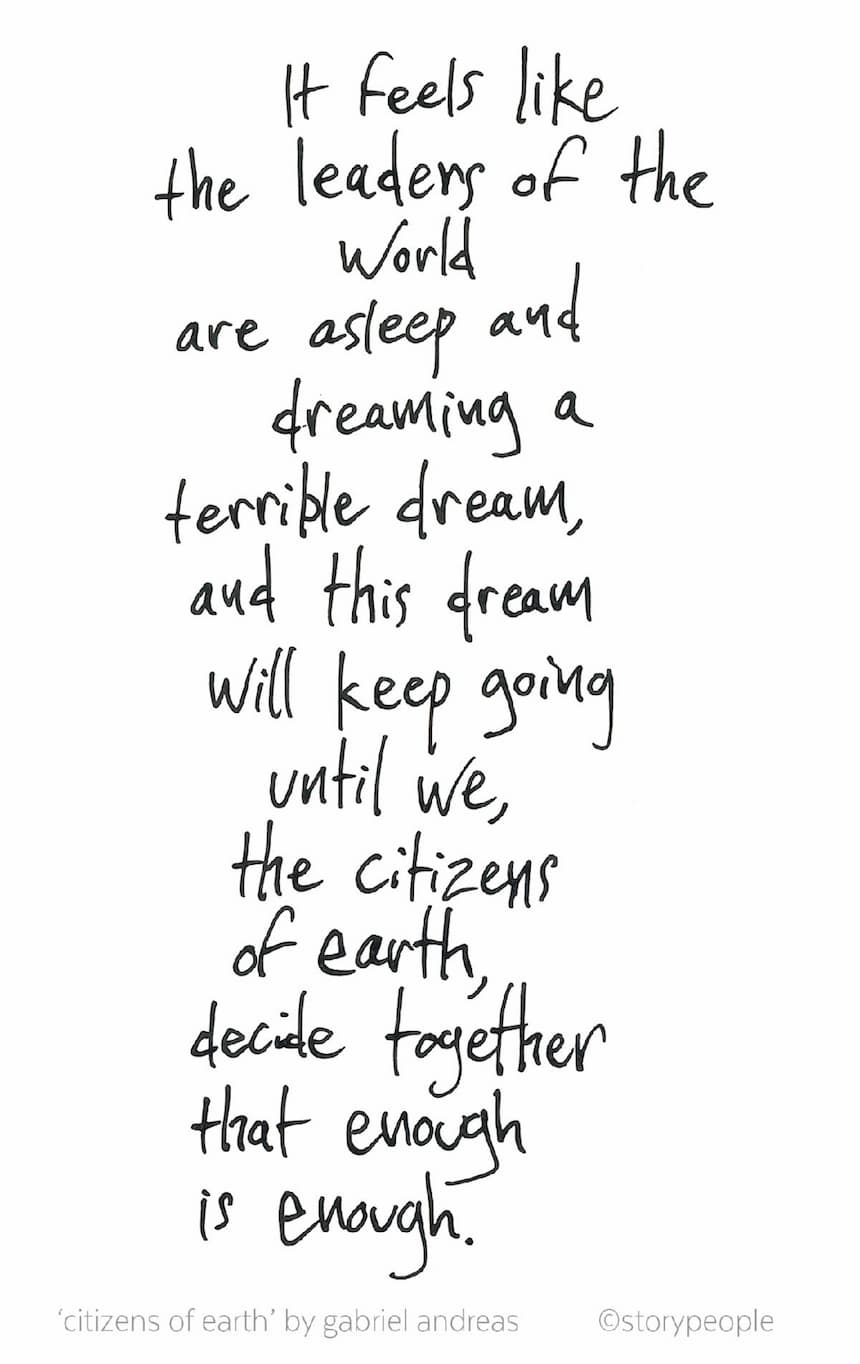 It feels like
the leaders of the
World
are asleep and
dreaming a
terrible dream,
and this dream
will keep going
until we,
the citizens
of earth,
decide together
that enough
is enough.
'citizens of earth' by gabriel andreas ©storypeople